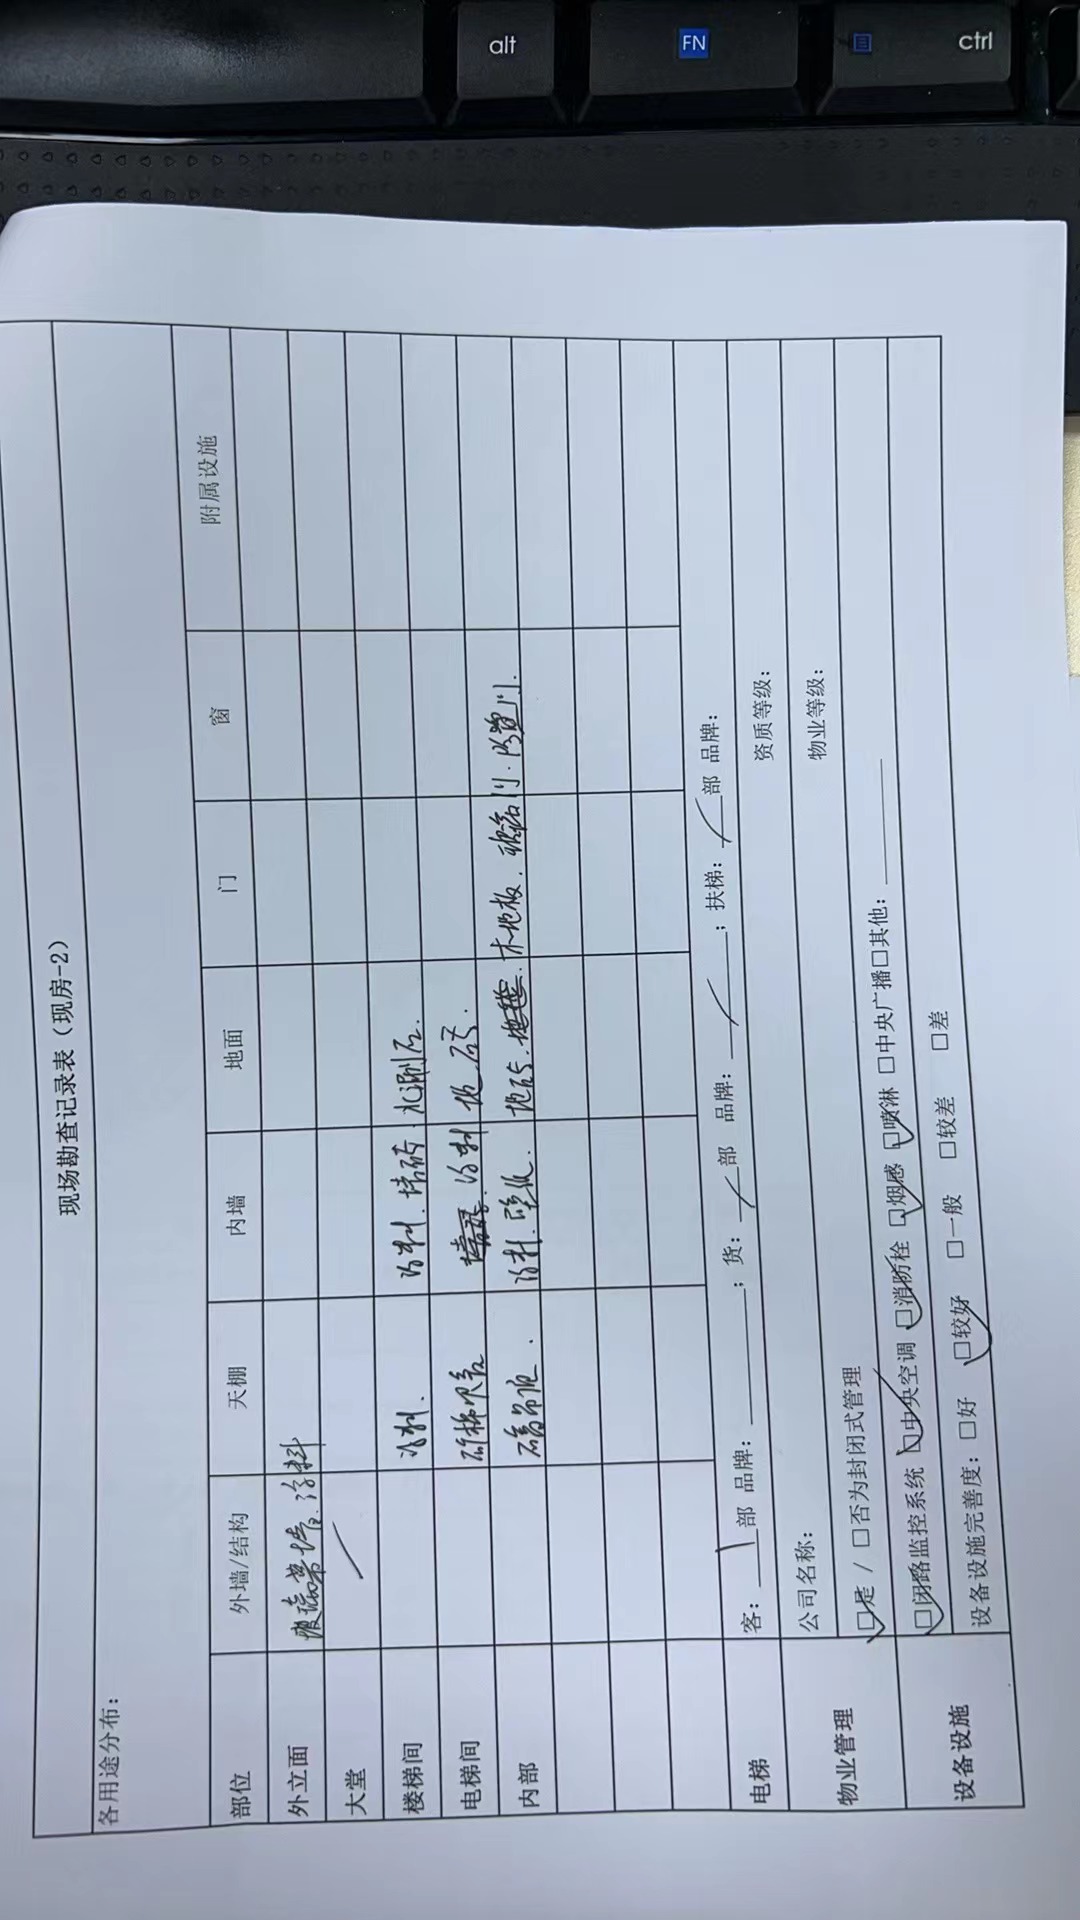 alt FN ctrl
现场勘查记录表（现房-2）
各用途分布：
部位 外墙/结构 天棚 内墙 地面 门 窗 附属设施
外立面 玻璃幕墙、涂料
大堂 /
楼梯间 涂料. 涂料. 墙砖. 水刷石.
电梯间 涂料 地砖.
内部 涂料. 壁纸. 地砖. 木地板.
电梯 客：1部 品牌：______；货：/部 品牌：/；扶梯：/部 品牌：
物业管理 公司名称： 资质等级：
☑是 / □否为封闭式管理 物业等级：
设备设施 ☑闭路监控系统 ☑中央空调 ☑消防栓 ☑烟感 ☑喷淋 □中央广播□其他：______
设备设施完善度： □好 ☑较好 □一般 □较差 □差